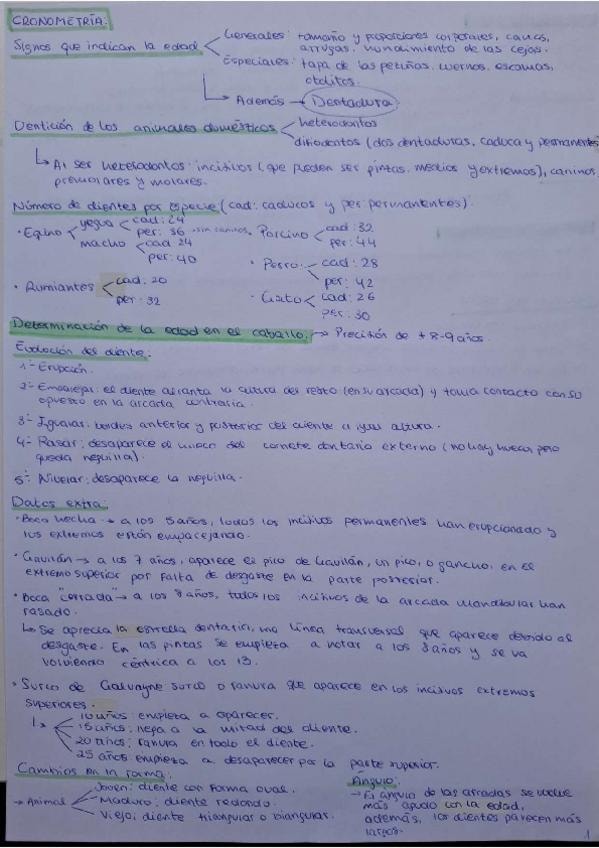 CRONOMETRÍA:
Signos que indican la edad Generales: tamaño y proporciones corporales, canas,
arrugas, hundimiento de las cejas.
Especiales: tapa de las pezuñas, cuernos, escamas,
otolitos.
Además → Dentadura
Dentición de los animales domésticos heterodontos
difiodontos (dos dentaduras, caduca y permanente)
Al ser heterodontos: incisivos (que pueden ser pinzas, medios y extremos), caninos,
premolares y molares.
Número de dientes por especie (cad: caducos y per permanentes).
• Equino yegua cad: 24
per: 36 → sin caninos
macho cad 24
per: 40
• Porcino cad: 32
per: 44
• Perro cad: 28
per: 42
• Rumiantes cad: 20
per: 32
• Gato cad: 26
per: 30
Determinación de la edad en el caballo: → Precisión de + 8-9 años.
Evolución del diente:
1- Erupción.
2- Emparejar: el diente alcanza la altura del resto (en su arcada) y toma contacto con su
opuesto en la arcada contraria.
3- Igualar: bordes anterior y posterior del diente a igual altura.
4- Rasar: desaparece el hueco del cornete dentario externo (no hay hueco, pero
queda neguilla).
5- Nivelar: desaparece la neguilla.
Datos extra:
• Boca hecha → a los 5 años, todos los incisivos permanentes han erupcionado y
los extremos están emparejando.
• Gavilán → a los 7 años, aparece el pico de Gavilán, un pico, o gancho, en el
extremo superior por falta de desgaste en la parte posterior.
• Boca "cerrada" → a los 8 años, todos los incisivos de la arcada mandibular han
rasado.
Se aprecia la estrella dentaria, una línea transversal que aparece debido al
desgaste. En las pinzas se empieza a notar a los 8 años y se va
volviendo céntrica a los 13.
• Surco de Galvayne surco o ranura que aparece en los incisivos extremos
superiores.
10 años: empieza a aparecer.
15 años: llega a la mitad del diente.
20 años: ranura en todo el diente.
25 años empieza a desaparecer por la parte superior.
Cambios en la forma:
→ Animal Joven: diente con forma oval.
Maduro: diente redondo.
Viejo: diente triangular o biangular.
Ángulo:
→ El ángulo de las arcadas se vuelve
más agudo con la edad,
además, los dientes parecen más
largos.
1